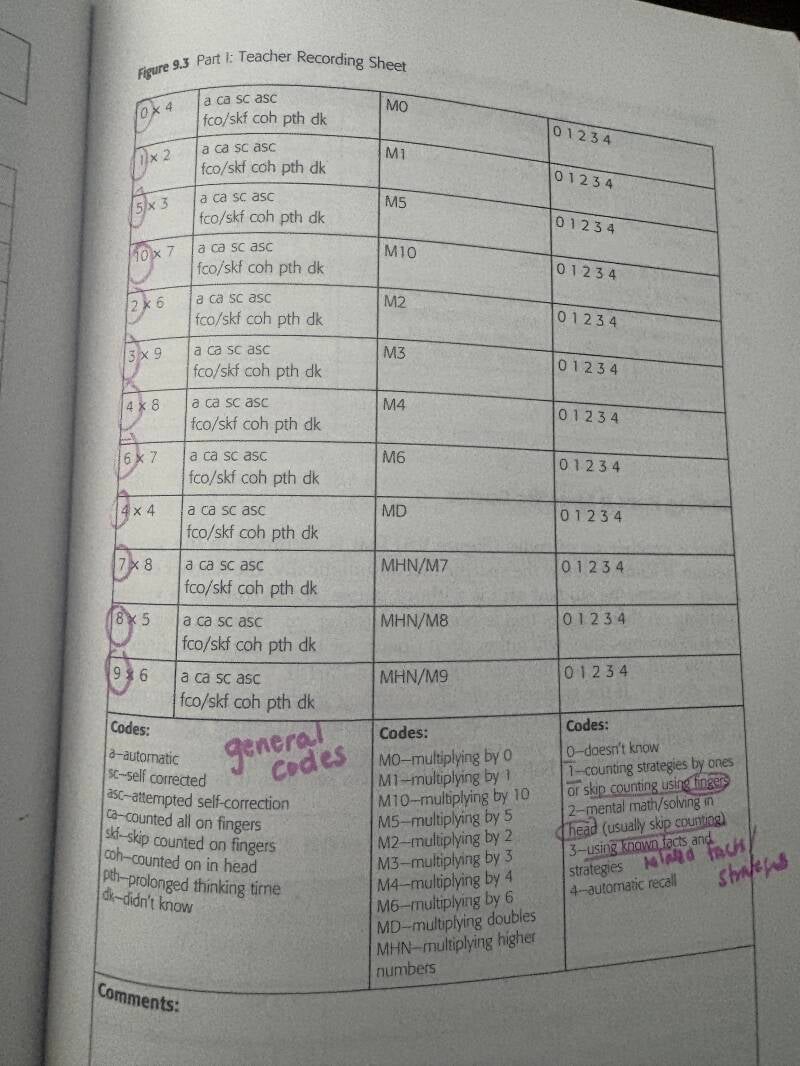 Figure 9.3 Part I: Teacher Recording Sheet
0 x 4 a ca sc asc M0 0 1 2 3 4
fco/skf coh pth dk
1 x 2 a ca sc asc M1 0 1 2 3 4
fco/skf coh pth dk
5 x 3 a ca sc asc M5 0 1 2 3 4
fco/skf coh pth dk
10 x 7 a ca sc asc M10 0 1 2 3 4
fco/skf coh pth dk
2 x 6 a ca sc asc M2 0 1 2 3 4
fco/skf coh pth dk
3 x 9 a ca sc asc M3 0 1 2 3 4
fco/skf coh pth dk
4 x 8 a ca sc asc M4 0 1 2 3 4
fco/skf coh pth dk
6 x 7 a ca sc asc M6 0 1 2 3 4
fco/skf coh pth dk
4 x 4 a ca sc asc MD 0 1 2 3 4
fco/skf coh pth dk
7 x 8 a ca sc asc MHN/M7 0 1 2 3 4
fco/skf coh pth dk
8 x 5 a ca sc asc MHN/M8 0 1 2 3 4
fco/skf coh pth dk
9 x 6 a ca sc asc MHN/M9 0 1 2 3 4
fco/skf coh pth dk
Codes:
general
codes
a—automatic
sc—self corrected
asc—attempted self-correction
ca—counted all on fingers
skf—skip counted on fingers
coh—counted on in head
pth—prolonged thinking time
dk—didn't know
Codes:
M0—multiplying by 0
M1—multiplying by 1
M10—multiplying by 10
M5—multiplying by 5
M2—multiplying by 2
M3—multiplying by 3
M4—multiplying by 4
M6—multiplying by 6
MD—multiplying doubles
MHN—multiplying higher
numbers
Codes:
0—doesn't know
1—counting strategies by ones
or skip counting using fingers
2—mental math/solving in
head (usually skip counting)
3—using known facts and
strategies related facts/
strategies
4—automatic recall
Comments: